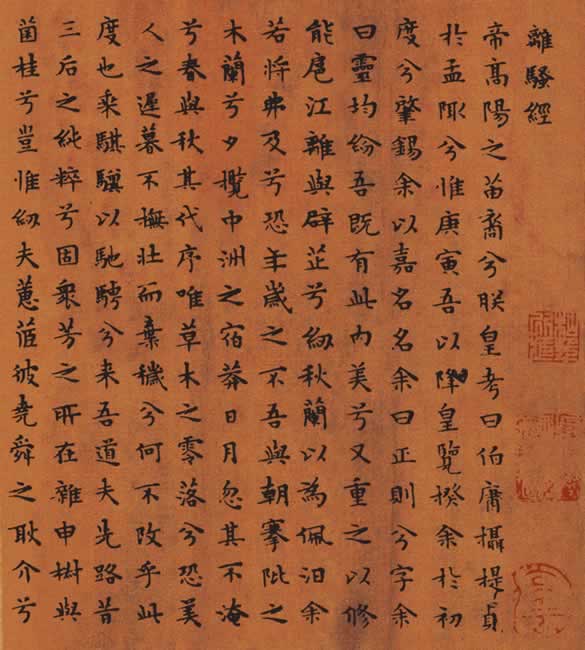 離騷經
帝高陽之苗裔兮朕皇考曰伯庸攝提貞
於孟陬兮惟庚寅吾以降皇覽揆余於初
度兮肇錫余以嘉名名余曰正則兮字余
曰靈均紛吾既有此內美兮又重之以修
能扈江離與辟芷兮紉秋蘭以為佩汩余
若將弗及兮恐年歲之不吾與朝搴阰之
木蘭兮夕攬中洲之宿莽日月忽其不淹
兮春與秋其代序唯草木之零落兮恐美
人之遲暮不撫壯而棄穢兮何不改乎此
度也乘騏驥以馳騁兮来吾道夫先路昔
三后之純粹兮固衆芳之所在雜申樹與
菌桂兮豈惟紉夫蕙茝彼堯舜之耿介兮